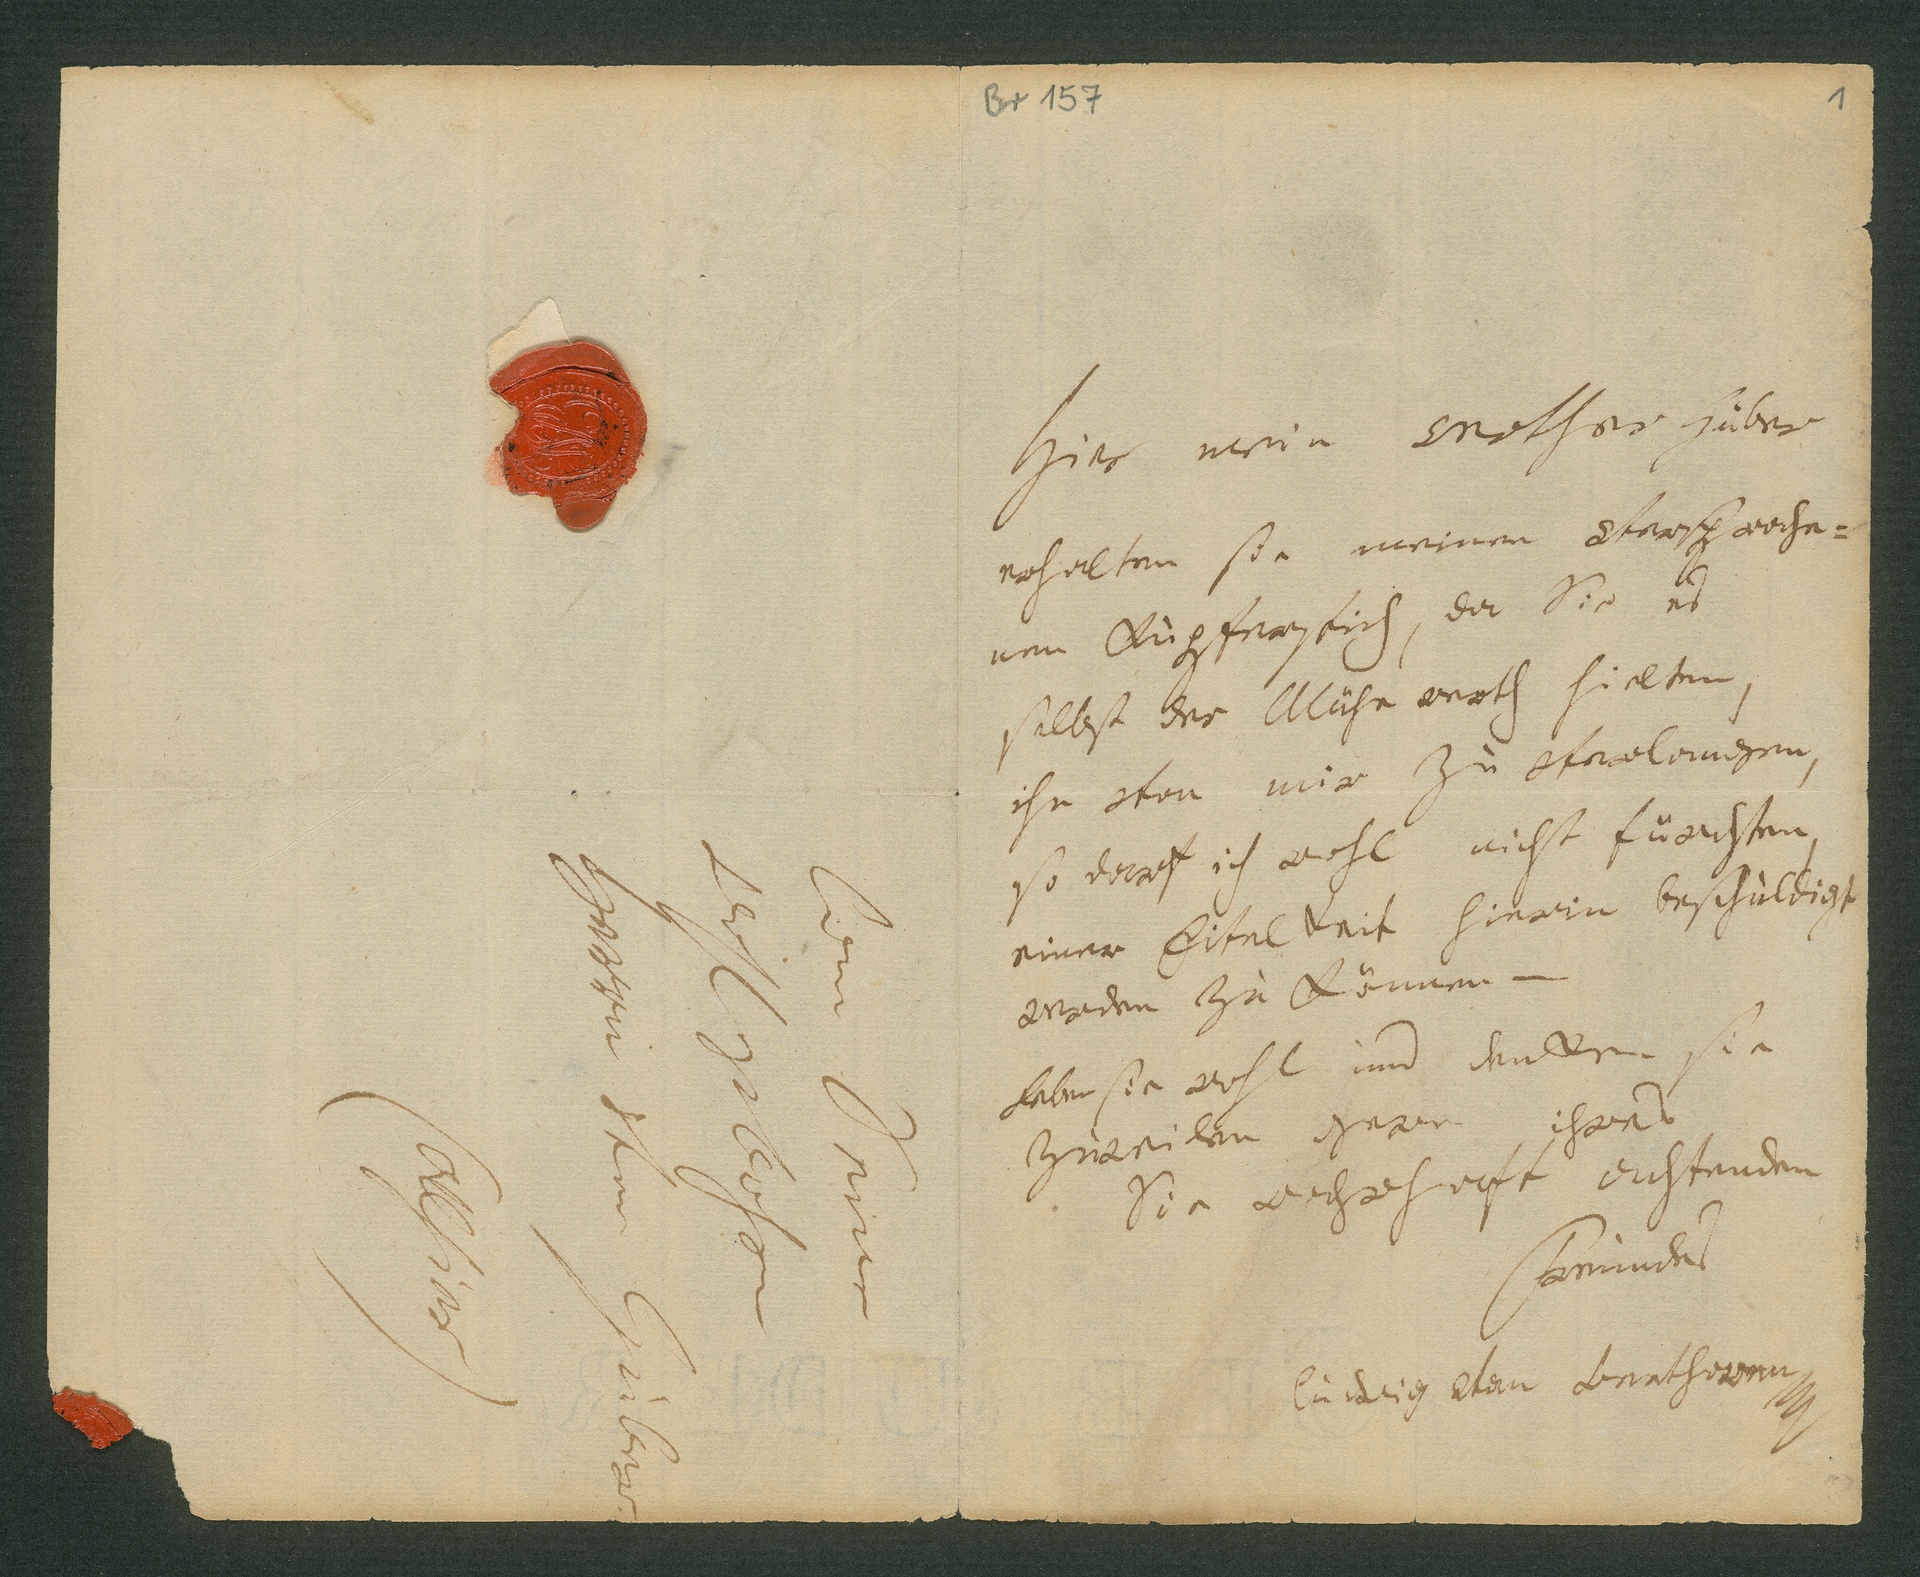 Br 157
1
Hier mein werther Huber
erhalten sie meinen versproche=
nen Kupferstich, da Sie es
selbst der Mühe werth hielten,
ihn von mir zu verlangen,
so darf ich wohl nicht fürchten,
einer Eitelkeit hierin beschuldigt
werden zu können —
leben sie wohl und denken sie
zuweilen gern ihres
Sie wahrhaft achtenden
Freundes
ludwig van Beethowen
Von Seiner
Wohlgebohrn
Herrn von Huber
(allhier)